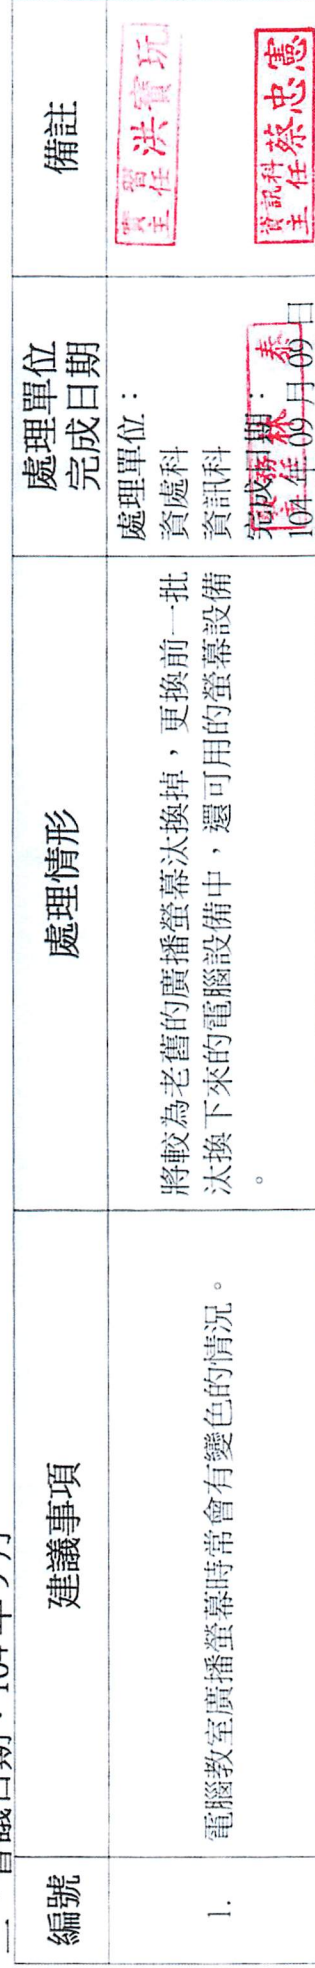 會議日期：104年9月
編號
建議事項
處理情形
處理單位
完成日期
備註
1.
電腦教室廣播螢幕時常會有變色的情況。
將較為老舊的廣播螢幕汰換掉，更換前一批
汰換下來的電腦設備中，還可用的螢幕設備
。
處理單位：
資處科
資訊科
完成日期：
104年09月09日
實習
主任
洪寶玩
資訊科
主任
蔡忠憲